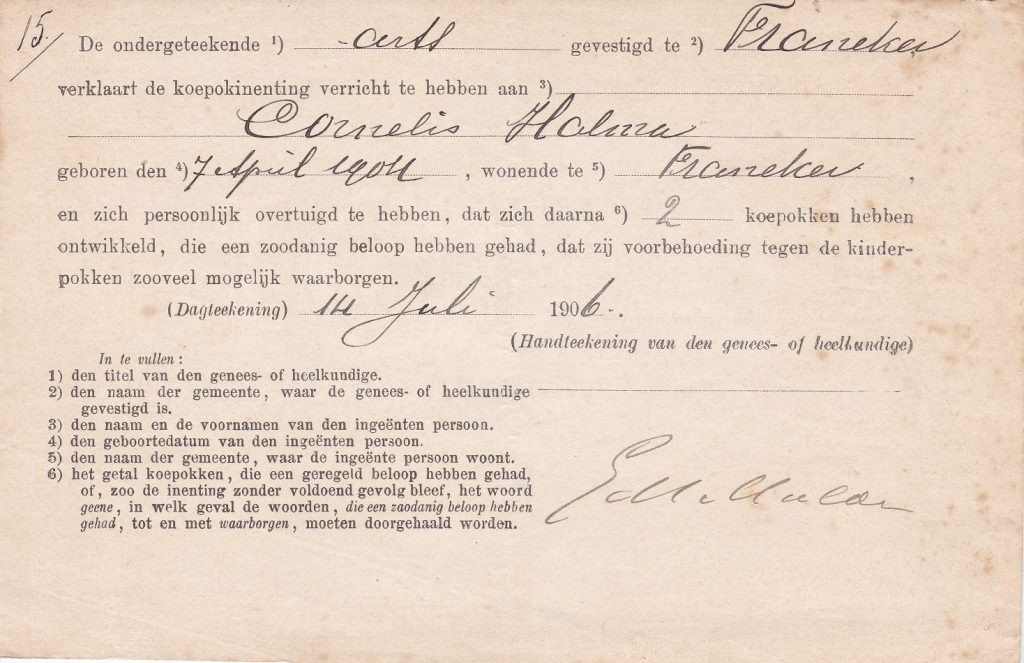 15.
De ondergeteekende ¹) arts gevestigd te ²) Franeker
verklaart de koepokinenting verricht te hebben aan ³)
Cornelis Halma
geboren den ⁴) 7 April 1904 , wonende te ⁵) Franeker ,
en zich persoonlijk overtuigd te hebben, dat zich daarna ⁶) 2 koepokken hebben
ontwikkeld, die een zoodanig beloop hebben gehad, dat zij voorbehoeding tegen de kinder-
pokken zooveel mogelijk waarborgen.
(Dagteekening) 14 Juli 1906.
(Handteekening van den genees- of heelkundige)
In te vullen:
1) den titel van den genees- of heelkundige.
2) den naam der gemeente, waar de genees- of heelkundige
gevestigd is.
3) den naam en de voornamen van den ingeënten persoon.
4) den geboortedatum van den ingeënten persoon.
5) den naam der gemeente, waar de ingeënte persoon woont.
6) het getal koepokken, die een geregeld beloop hebben gehad,
of, zoo de inenting zonder voldoend gevolg bleef, het woord
geene, in welk geval de woorden, die een zaodanig beloop hebben
gehad, tot en met waarborgen, moeten doorgehaald worden.
Mulder